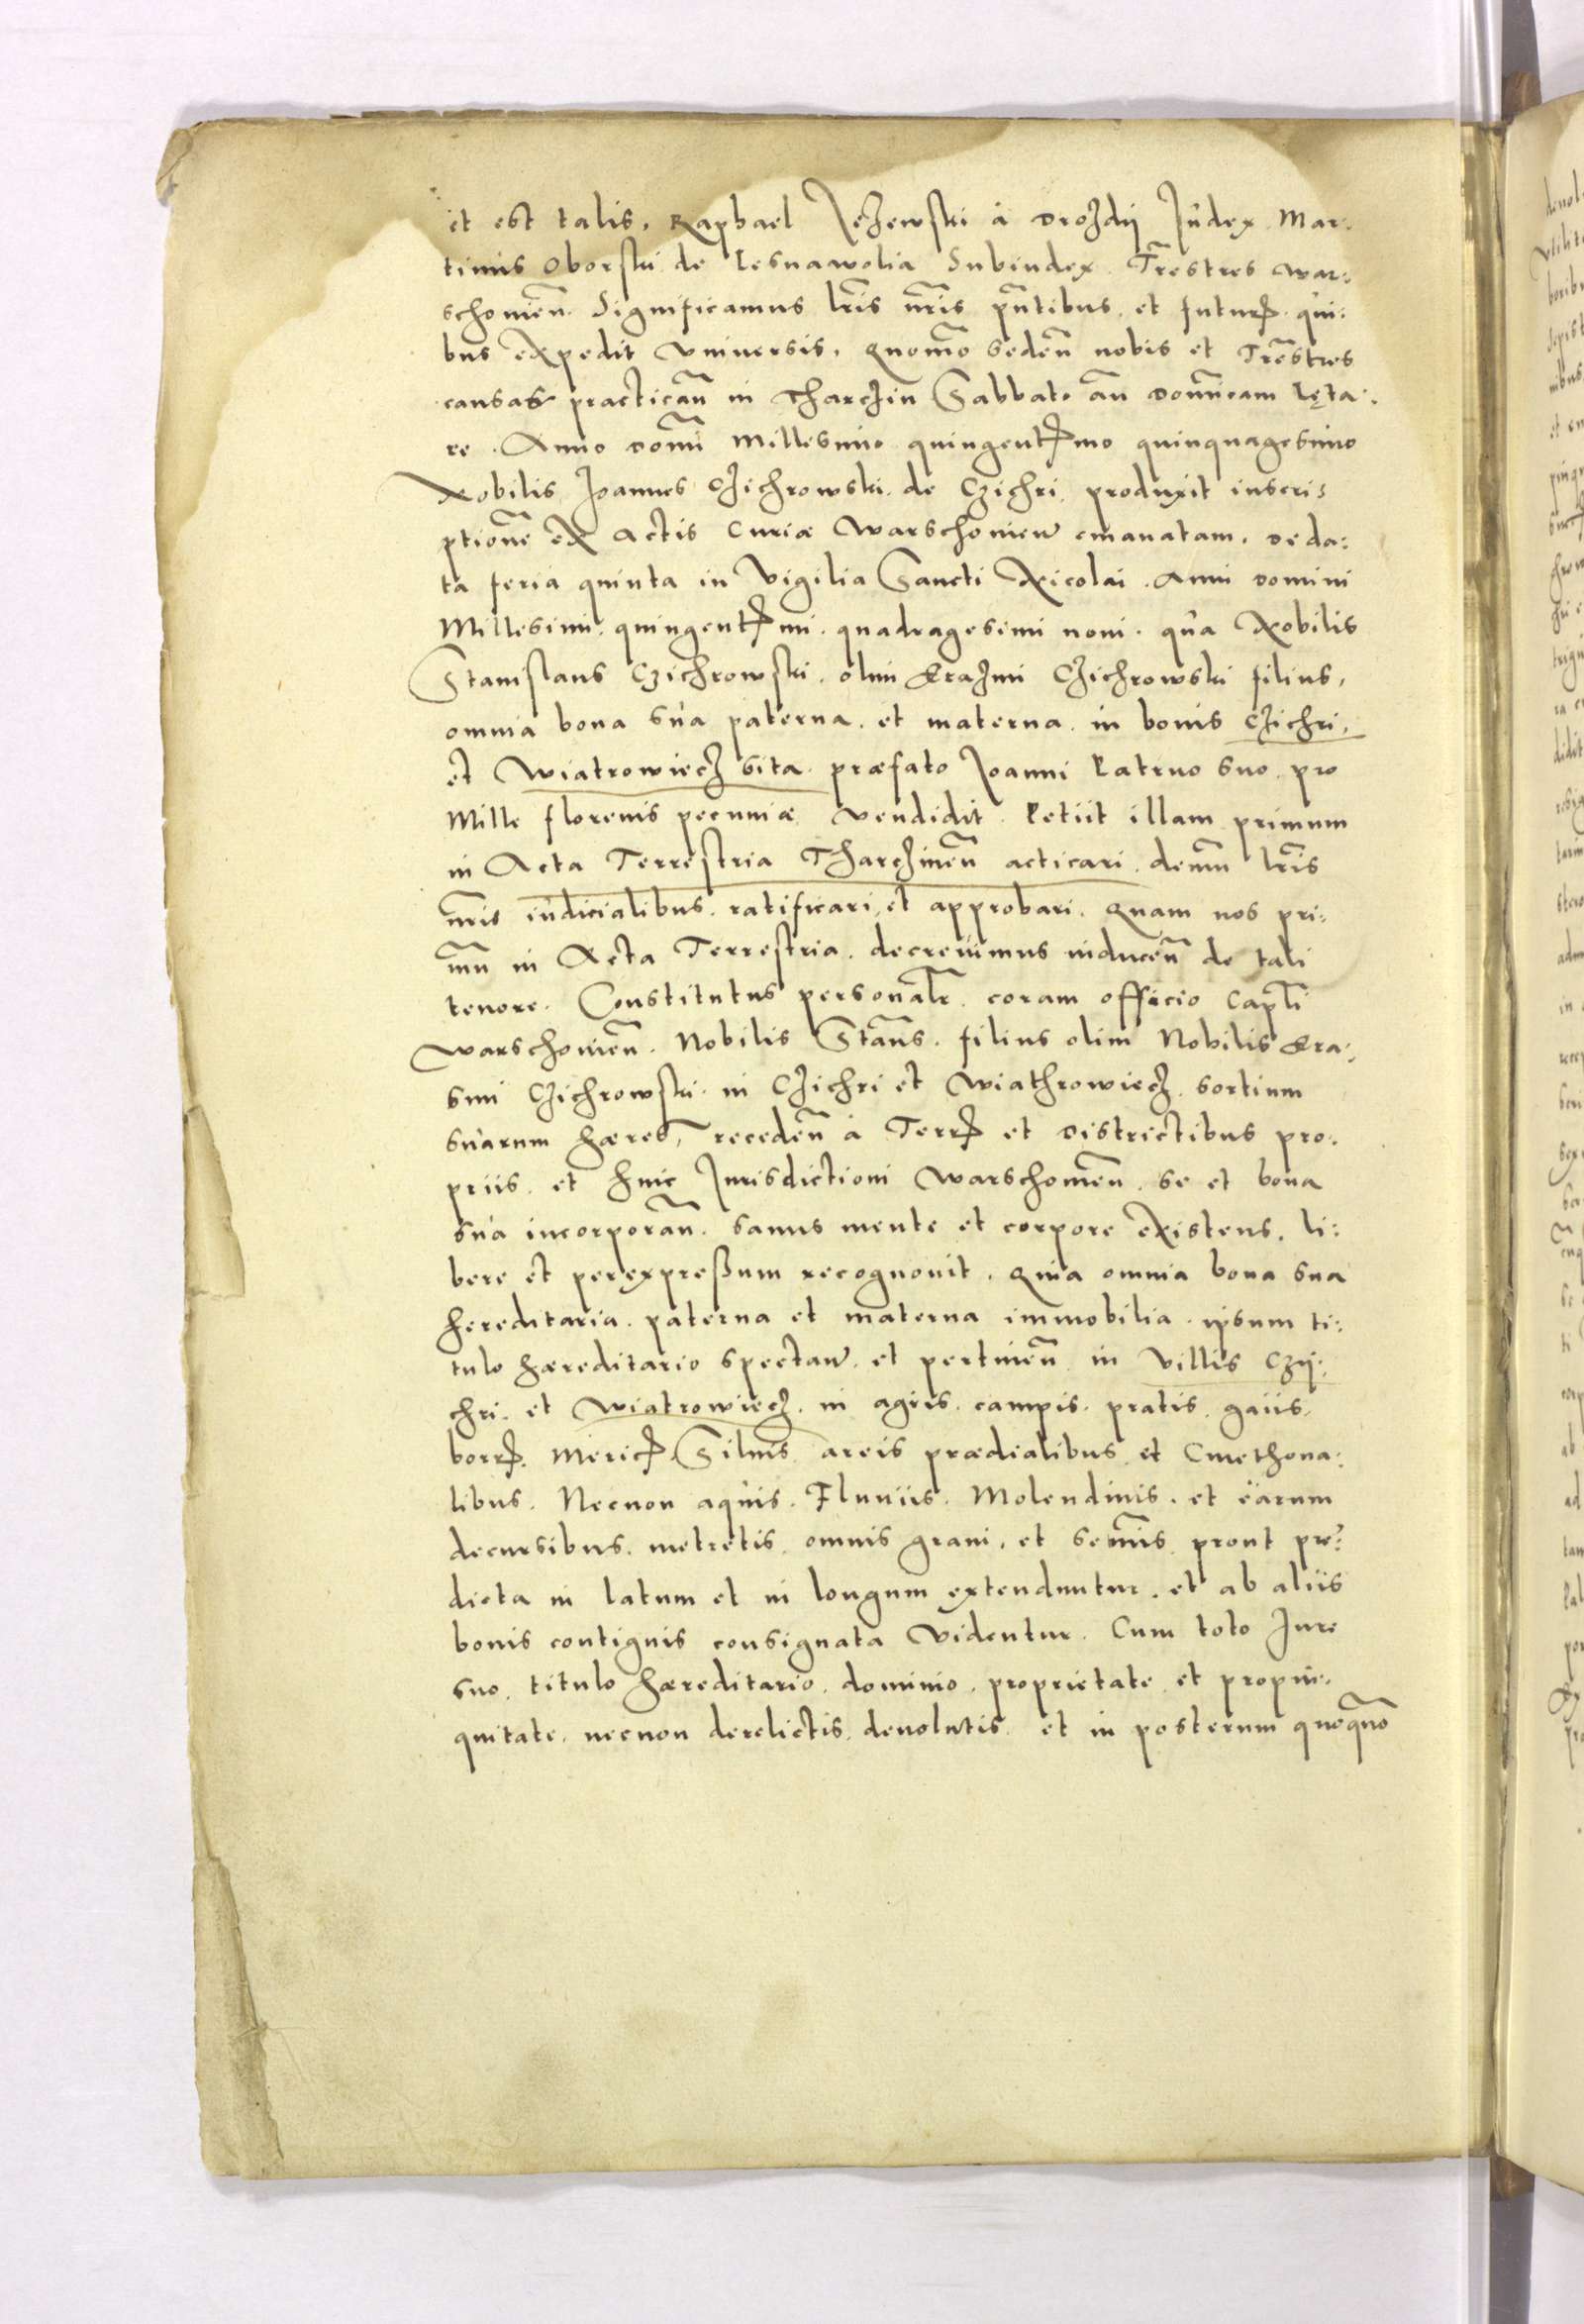 et est talis. Raphael Jeżewski à Drożdÿ Judex. Mar.
tinus Oborski de Lesnawolia Subiudex. Tr̃estres war:
schouieñ. Significamus lr̃is nr̃is pñtibus. et futur̃. qui:
bus expedit vniuersis. Quom̃o sedeñ nobis et Tr̃estres
causas practicañ in Tharcżin Sabbato añ Dom̃icam lęta:
re. Anno Dom̃i Millesimo quingent̃mo quinquagesimo
Nobilis Joannes Cżichrowski. de Czichri. produxit inscri:
ptionẽ ex Actis Curiæ Warschouieñ emanatam. De da:
ta feria quinta in vigilia Sancti Nicolai. Anni Domini
Millesimi. quingent̃mi. quadragesimi noni. qua Nobilis
Stanislaus Czichrowski. olim Erażmi Cżichrowski filius.
omnia bona sua paterna. et materna. in bonis Cżichri.
et Wiatrowiecż sita. præfato Joanni Patruo suo. pro
Mille florenis pecuniæ vendidit. Petiit illam primum
in Acta Terrestria Tharcżineñ acticari. demũ lr̃is
nr̃is iudicialibus. ratificari. et approbari. Quam nos pri:
mũ in Acta Terrestria. decreuimus induceñ de tali
tenore. Constitutus personalr̃. coram officio Capl̃i
warschouieñ. Nobilis Stañs. filius olim Nobilis Era.
smi Cżichrowski. in Cżichri et Wiathrowiecż. sortium
suarum hæres, recedeñ à Terr̃ et Districtibus pro.
priis. et huic Jurisdictioni Warschouieñ. se et bona
sua incorporañ. sanus mente et corpore existens. li:
bere et per expreßum recognouit. Quia omnia bona sua
hereditaria. paterna et materna immobilia. ipsum ti:
tulo hæreditario spectañ. et pertineñ in villis Czÿ.
chri. et Wiatrowiecż. in agris. campis. pratis. gaiis.
borr̃. Meric̃. Siluis. areis prædialibus et Cmethona:
libus. Necnon aquis. Fluuiis. Molendinis. et earum
decursibus. metretis. omnis grani. et semĩs. prout præ:
dicta in latum et in longum extenduntur. et ab aliis
bonis contiguis consignata videntur. Cum toto Jure
suo. titulo hæreditario. dominio. proprietate. et propin.
quitate. necnon derelictis. deuolutis. et in posterum quoquõ